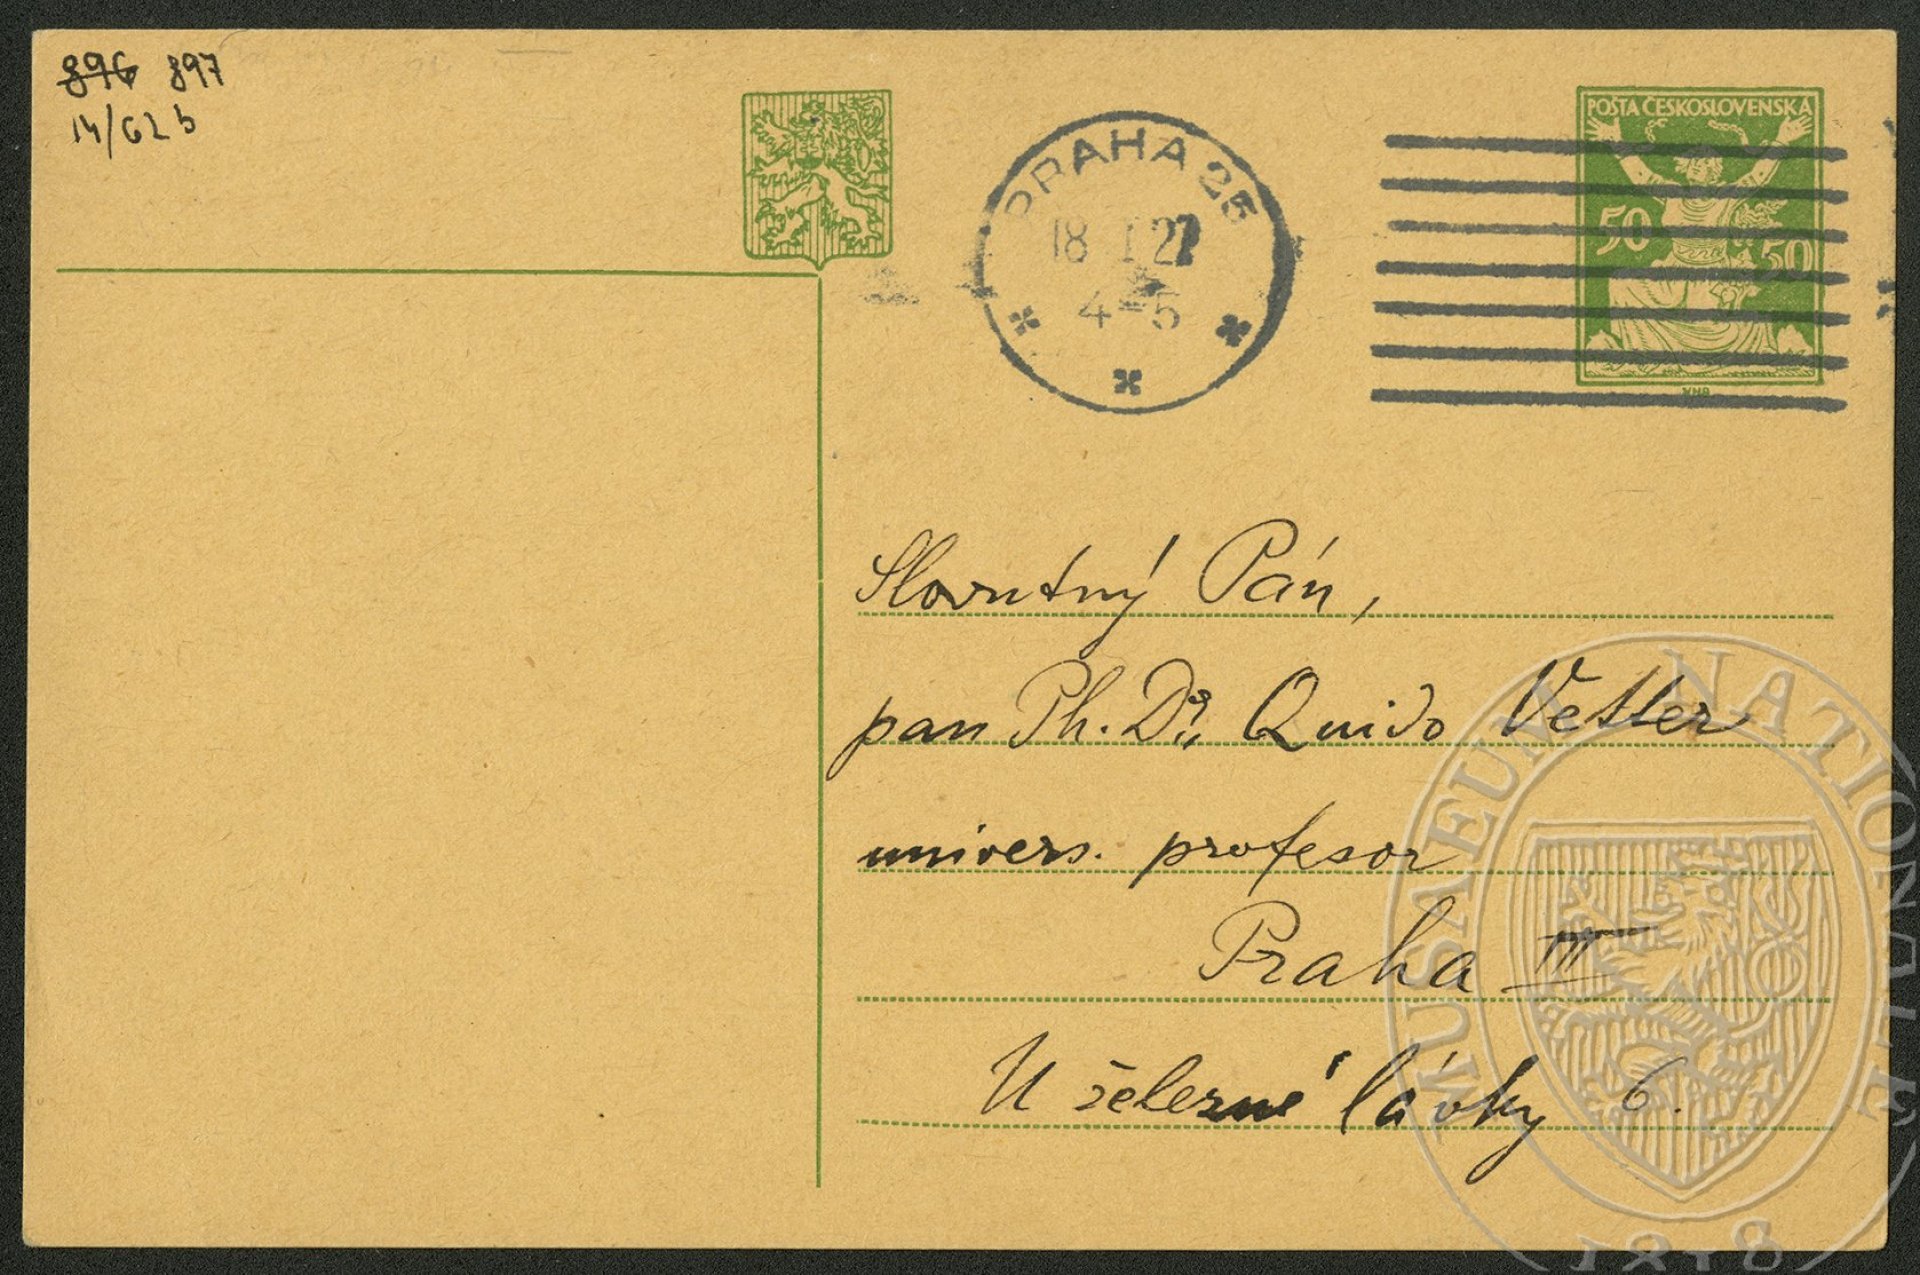 896 897
14/62 b
POŠTA ČESKOSLOVENSKÁ
50 50
PRAHA 25
18 I 27
4-5
Slovutný Pán,
pan Ph. Dr. Quido Vetter
univers. profesor
Praha III
U železné lávky 6.
MUSAEUM NATIONALE
1818